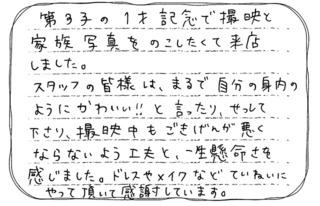 第3子の1才記念で撮映と
家族写真をのこしたくて来店
しました。
スタッフの皆様は、まるで自分の身内の
ようにかわいい!!と言ったり、せっして
下さり、撮映中もごきげんが悪く
ならないよう工夫と、一生懸命さを
感じました。ドレスやメイクなどていねいに
やって頂いて感謝しています。